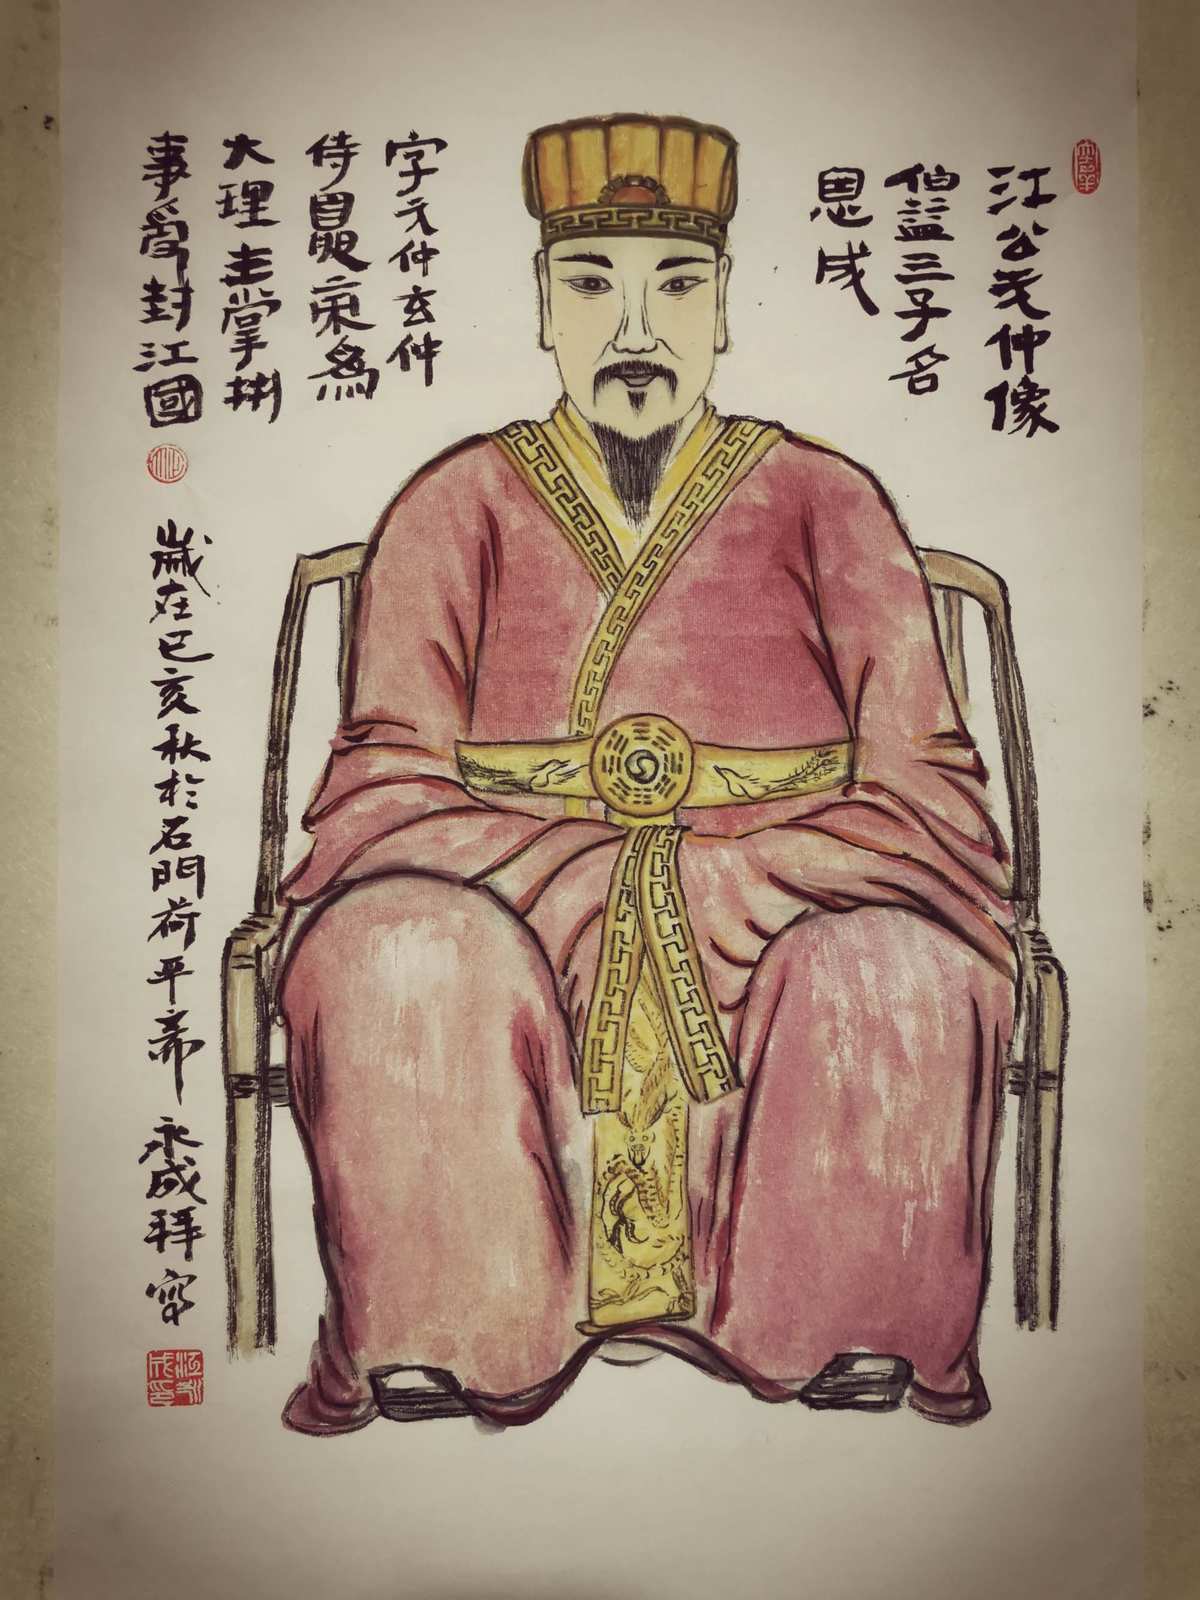 江公元仲像
伯益三子名
恩成
字元仲玄仲
侍夏帝為
大理主掌刑
事受封江國
歲在己亥秋於石門荷平齋
永成拜寫